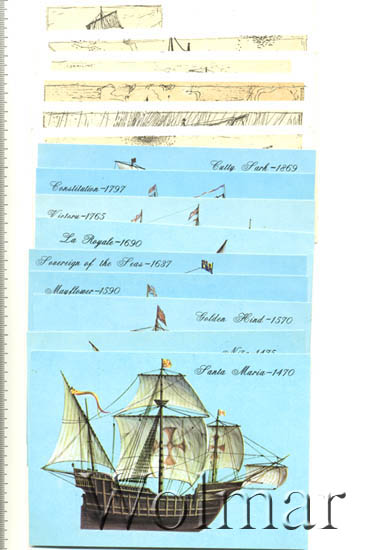 Cutty Sark-1869
Constitution-1797
Victory-1765
La Royale-1690
Sovereign of the Seas-1637
Mayflower-1590
Golden Hind-1570
Santa Maria-1470
Wolmar